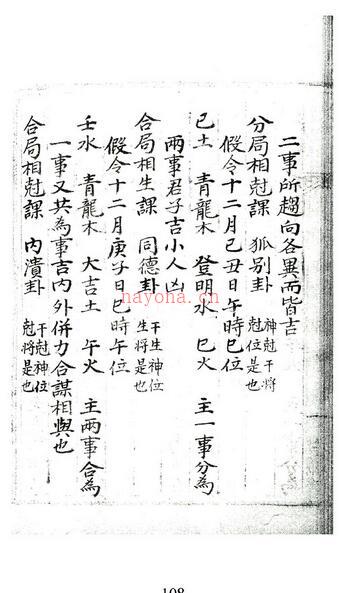 二事所趨向各異而皆吉
分局相尅課 狐別卦 神尅干將
尅位是也
假令十二月己丑日午時巳位
己土 青龍木 登明水 巳火 主一事分為
兩事君子吉小人凶
合局相生課 同德卦 干生神位
生將是也
假令十二月庚子日巳時午位
壬水 青龍木 大吉土 午火 主兩事合為
一事又共為事吉內外併力合謀相與也
合局相尅課 內潰卦 干尅神位
尅將是也
nayona.cn
108